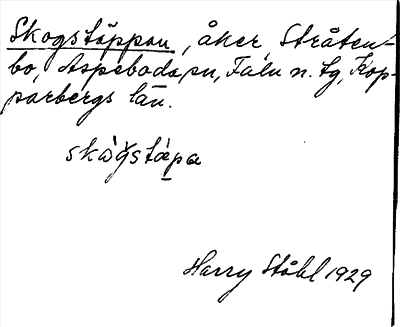 Skogstäppan, åker, Stråten-
bo, Aspeboda sn, Falu n. tg, Kop-
parbergs län.
skògstä́pa
Harry Ståhl 1929